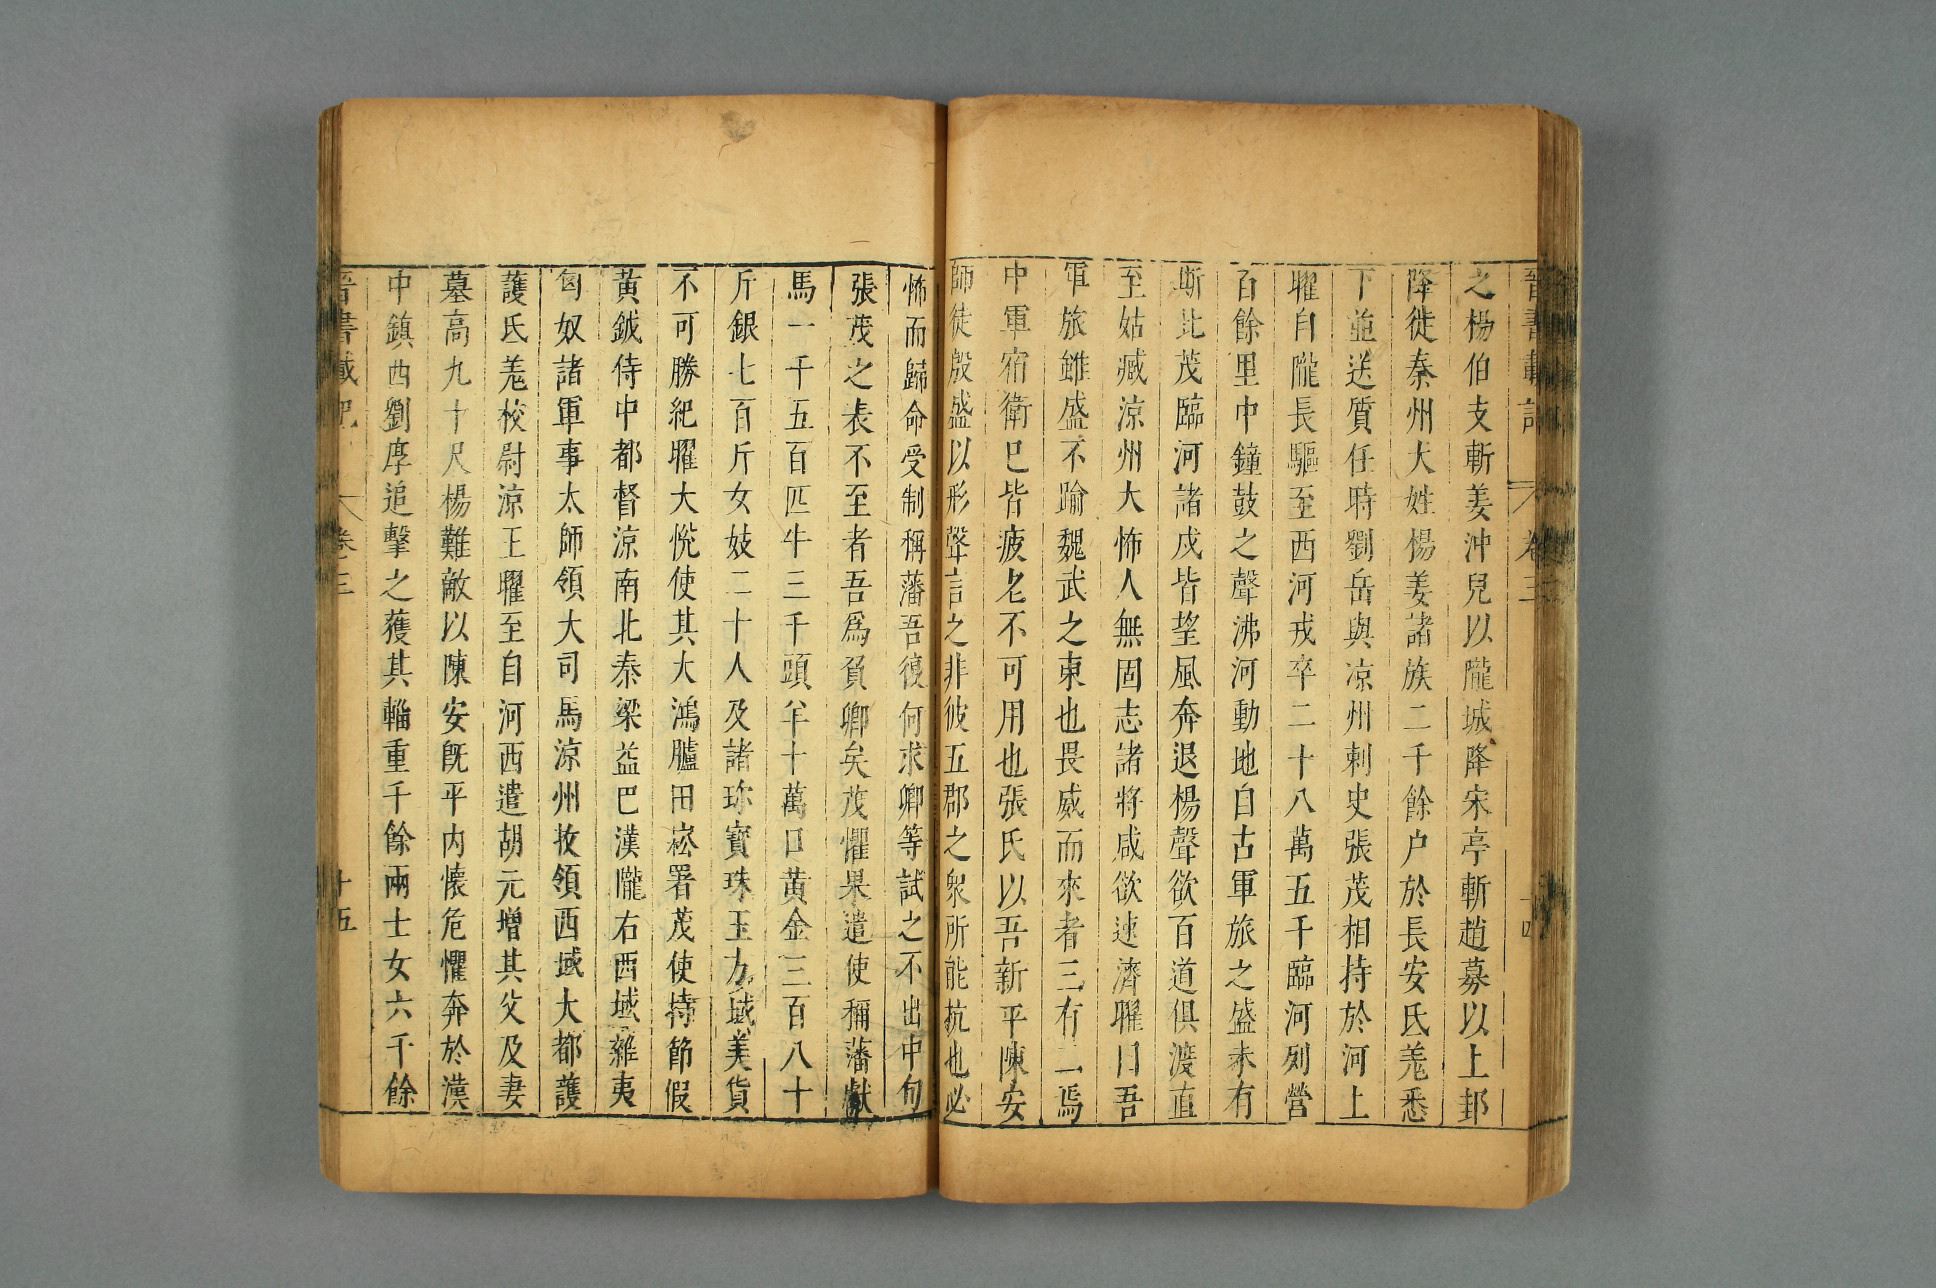 晉書載記 卷三 十四
之楊伯支斬姜沖兒以隴城降宋亭斬趙募以上邽
降徙秦州大姓楊姜諸族二千餘户於長安氐羌悉
下並送質任時劉岳與凉州刺史張茂相持於河上
曜自隴長驅至西河戎卒二十八萬五千臨河列營
百餘里中鐘鼓之聲沸河動地自古軍旅之盛未有
斯比茂臨河諸戍皆望風奔退楊聲欲百道俱渡直
至姑臧涼州大怖人無固志諸將咸欲速濟曜曰吾
軍旅雖盛不踰魏武之東也畏威而來者三有二焉
中軍宿衛已皆疲老不可用也張氏以吾新平陳安
師徒殷盛以形聲言之非彼五郡之衆所能抗也必
怖而歸命受制稱藩吾復何求卿等試之不出中旬
張茂之表不至者吾爲負卿矣茂懼果遣使稱藩獻
馬一千五百匹牛三千頭羊十萬口黃金三百八十
斤銀七百斤女妓二十人及諸珎寳珠玉方域美貨
不可勝紀曜大悅使其大鴻臚田崧署茂使持節假
黃鉞侍中都督涼南北秦梁益巴漢隴右西域雜夷
匈奴諸軍事太師領大司馬涼州牧領西域大都護
護氐羌校尉涼王曜至自河西遣胡元增其父及妻
墓高九十尺楊難敵以陳安旣平内懷危懼奔於漢
中鎮西劉厚追擊之獲其輜重千餘兩士女六千餘
晉書載記 卷三 十五